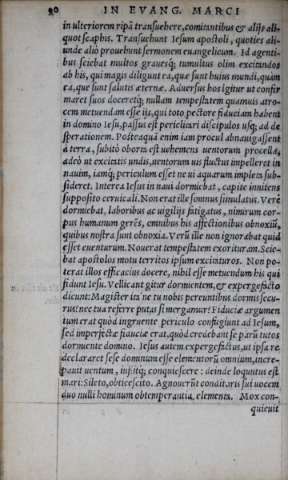 90 IN EVANG. MARCI
in ulteriorem ripã transuehere, comitantibus & alijs ali-
quot scaphis. Transuehunt Iesum apostoli, quoties ali-
unde aliò prouehunt sermonem euangelicum. Id agenti-
bus sciebat multos grauesq; tumultus olim excitandos
ab his, qui magis diligunt ea, quæ sunt huius mundi, quàm
ea, quæ sunt salutis æternæ. Aduersus hos igitur ut confir
maret suos docereťq; nullam tempestatem quamuis atro-
cem metuendam esse ijs, qui toto pectore fiduciam habent
in domino Iesu, passus est periclitari discipulos usq; ad de
sperationem. Posteaquã enim iam procul abnauigassent
à terra, subitò oborta est uehemens uentorum procella,
adeò ut excitatis undis, uentorum uis fluctus impelleret in
nauim, iamq; periculum esset ne ui aquarum impleta sub-
sideret. Interea Iesus in naui dormiebat, capite innitens
supposito ceruicali. Non erat ille somnus simulatus. Verè
dormiebat, laboribus ac uigilijs fatigatus, nimirum cor-
pus humanum gerẽs, omnibus his affectionibus obnoxiũ,
quibus nostra sunt obnoxia. Verũ ille non ignorabat quid
esset euenturum. Nouerat tempestatem exorituram. Scie-
bat apostolos motu territos ipsum excinturos. Non po-
terat illos efficacius docere, nihil esse metuendum his qui
fidunt Iesu. Vellicant igitur dormientem, & expergefacto
dicunt: Magister ita'ne tu nobis pereuntibus dormis secu-
rus: nec tua referre putas si mergamur? Fiduciæ argumen
tum erat quòd ingruente periculo confugiunt ad Iesum,
sed imperfectæ fiduciæ erat, quòd credebant se parũ tutos
dormiente domino. Iesus autem expergefactus, ut ipsa re
declararet sese dominum esse elementorũ omnium, incre-
pauit uentum, iussitq; conquiescere: deinde loquutus est
mari: Sileto, obticescito. Agnouerũt conditoris sui uocem,
quo nulli hominum obtemperantia, elementa. Mox con-
quieuit